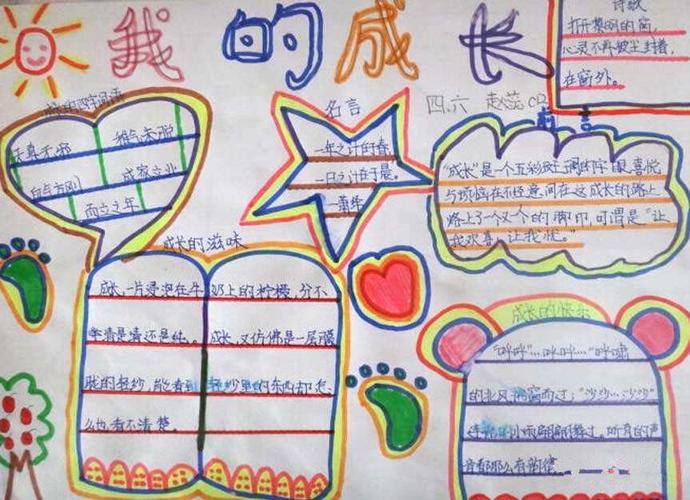 我的成长
诗歌
打开禁闭的窗,
心灵不再被尘封着,
在窗外。
四.六 赵蕊
成长的四字词语
天真无邪 稚气未脱
血气方刚 成家立业
而立之年
名言
一年之计在于春,
一日之计在于晨。
前言
"成长"是一个五彩斑斓的字眼,喜悦
与烦恼在不经意间在这成长的路上
踏上了一个又一个的脚印,可谓是"让
我欢喜,让我忧。"
成长的滋味
成长,一片浸泡在牛奶上的柠檬,分不
清是清还是纯。成长,又仿佛是一层朦
胧的轻纱,能看到轻纱里的东西却怎
么也看不清楚。
成长的快乐
"呼呼"…呼呼…"呼啸
的北风
"沙沙…沙沙"
音都那么有韵律